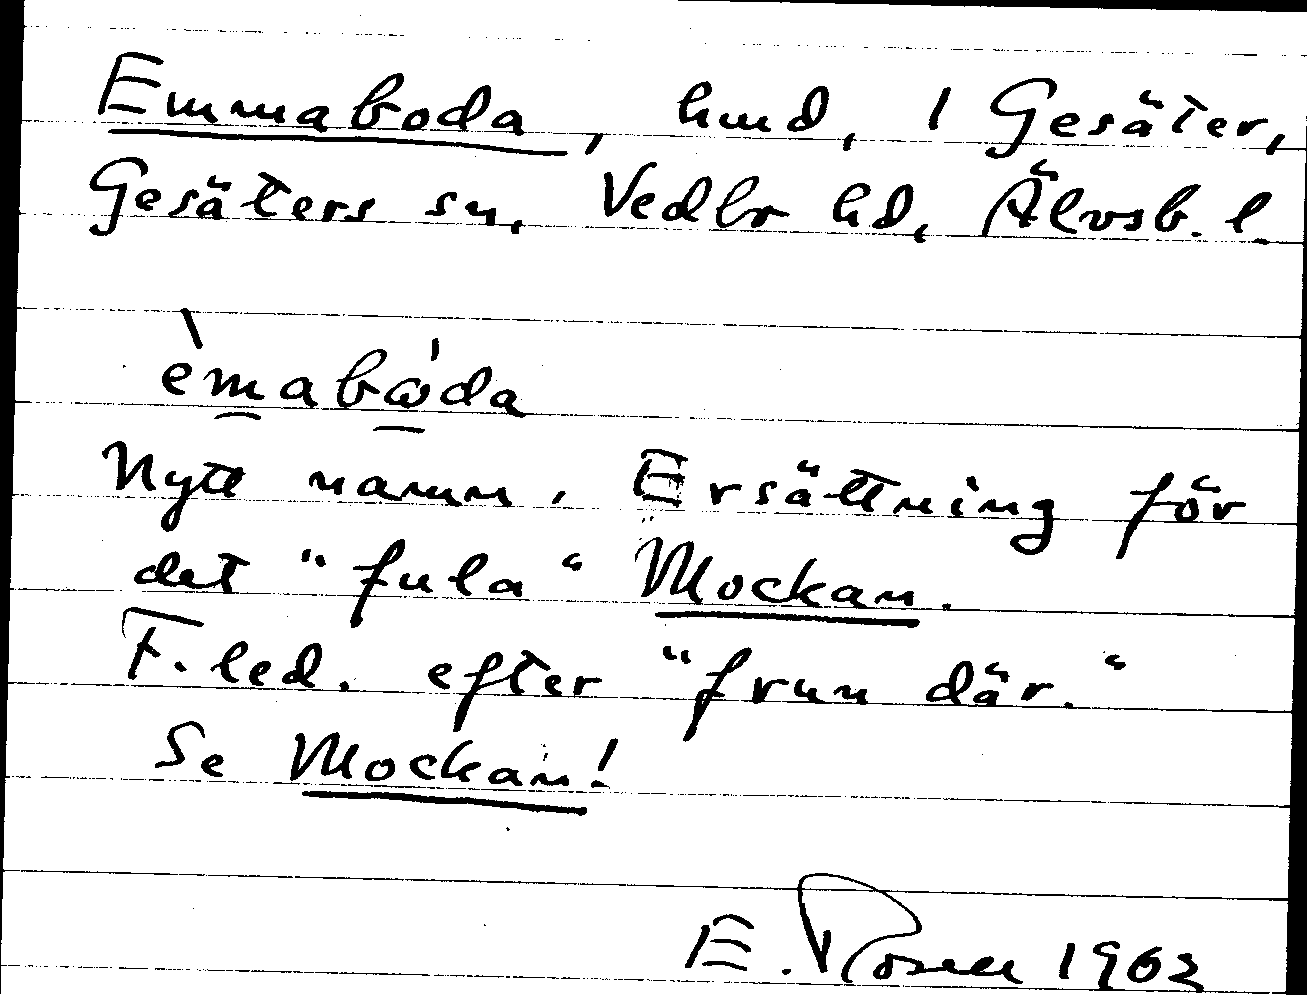 Emmaboda, hmd, 1 Gesäter,
Gesäters sn, Vedbo hd, Älvsb. l.
èmabωda
Nytt namn. Ersättning för
det "fula" Mockan.
F. led. efter "frun där."
Se Mockan!
E. Rosell 1962